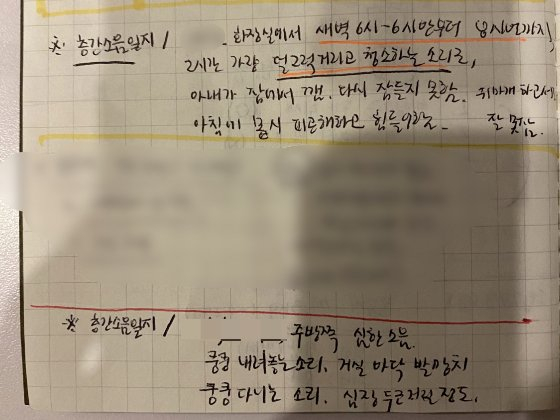 ※ 층간소음일지 / 화장실에서 새벽 6시-6시반부터 8시반까지
2시간 가량 덜그럭거리고 청소하는 소리로,
아내가 잠에서 깸. 다시 잠든지 못함. 귀마개 하고서
아침에 몹시 피곤해하고 힘들어함. 잘 못잠.
※ 층간소음일지 / 주방쪽 심한 소음.
쿵쿵 내려놓는 소리, 거실 바닥 발망치
쿵쿵 다니는 소리. 심장 두근거릴 정도.